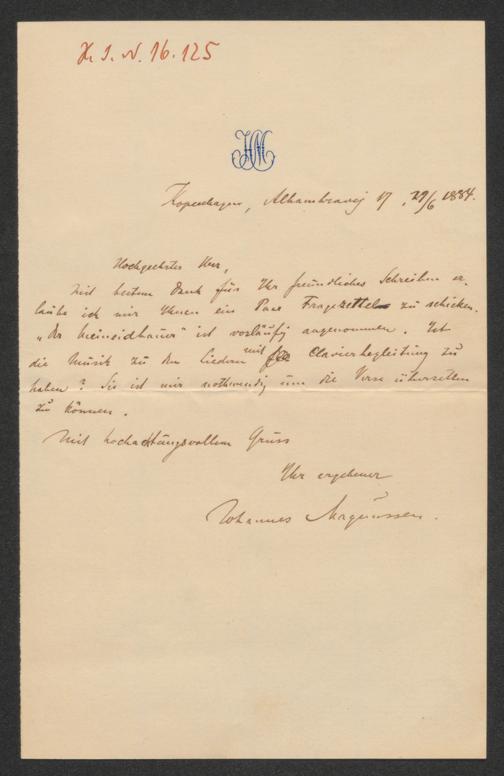 H. I. N. 16.125
JM
Kopenhagen, Alhambravej 17, 29/6 1884.
Hochgeehrter Herr,
Mit bestem Dank für Ihr freundliches Schreiben er-
laube ich mir Ihnen ein Paar Fragezettel zu schicken.
„Der Meineidbauer" ist vorläufig angenommen. Ist
die Musik zu den Liedern mit Clavierbegleitung zu
haben? Sie ist mir nothwendig um die Verse übersetzen
zu können.
Mit hochachtungsvollem Gruss
Ihr ergebener
Johannes Magnussen.